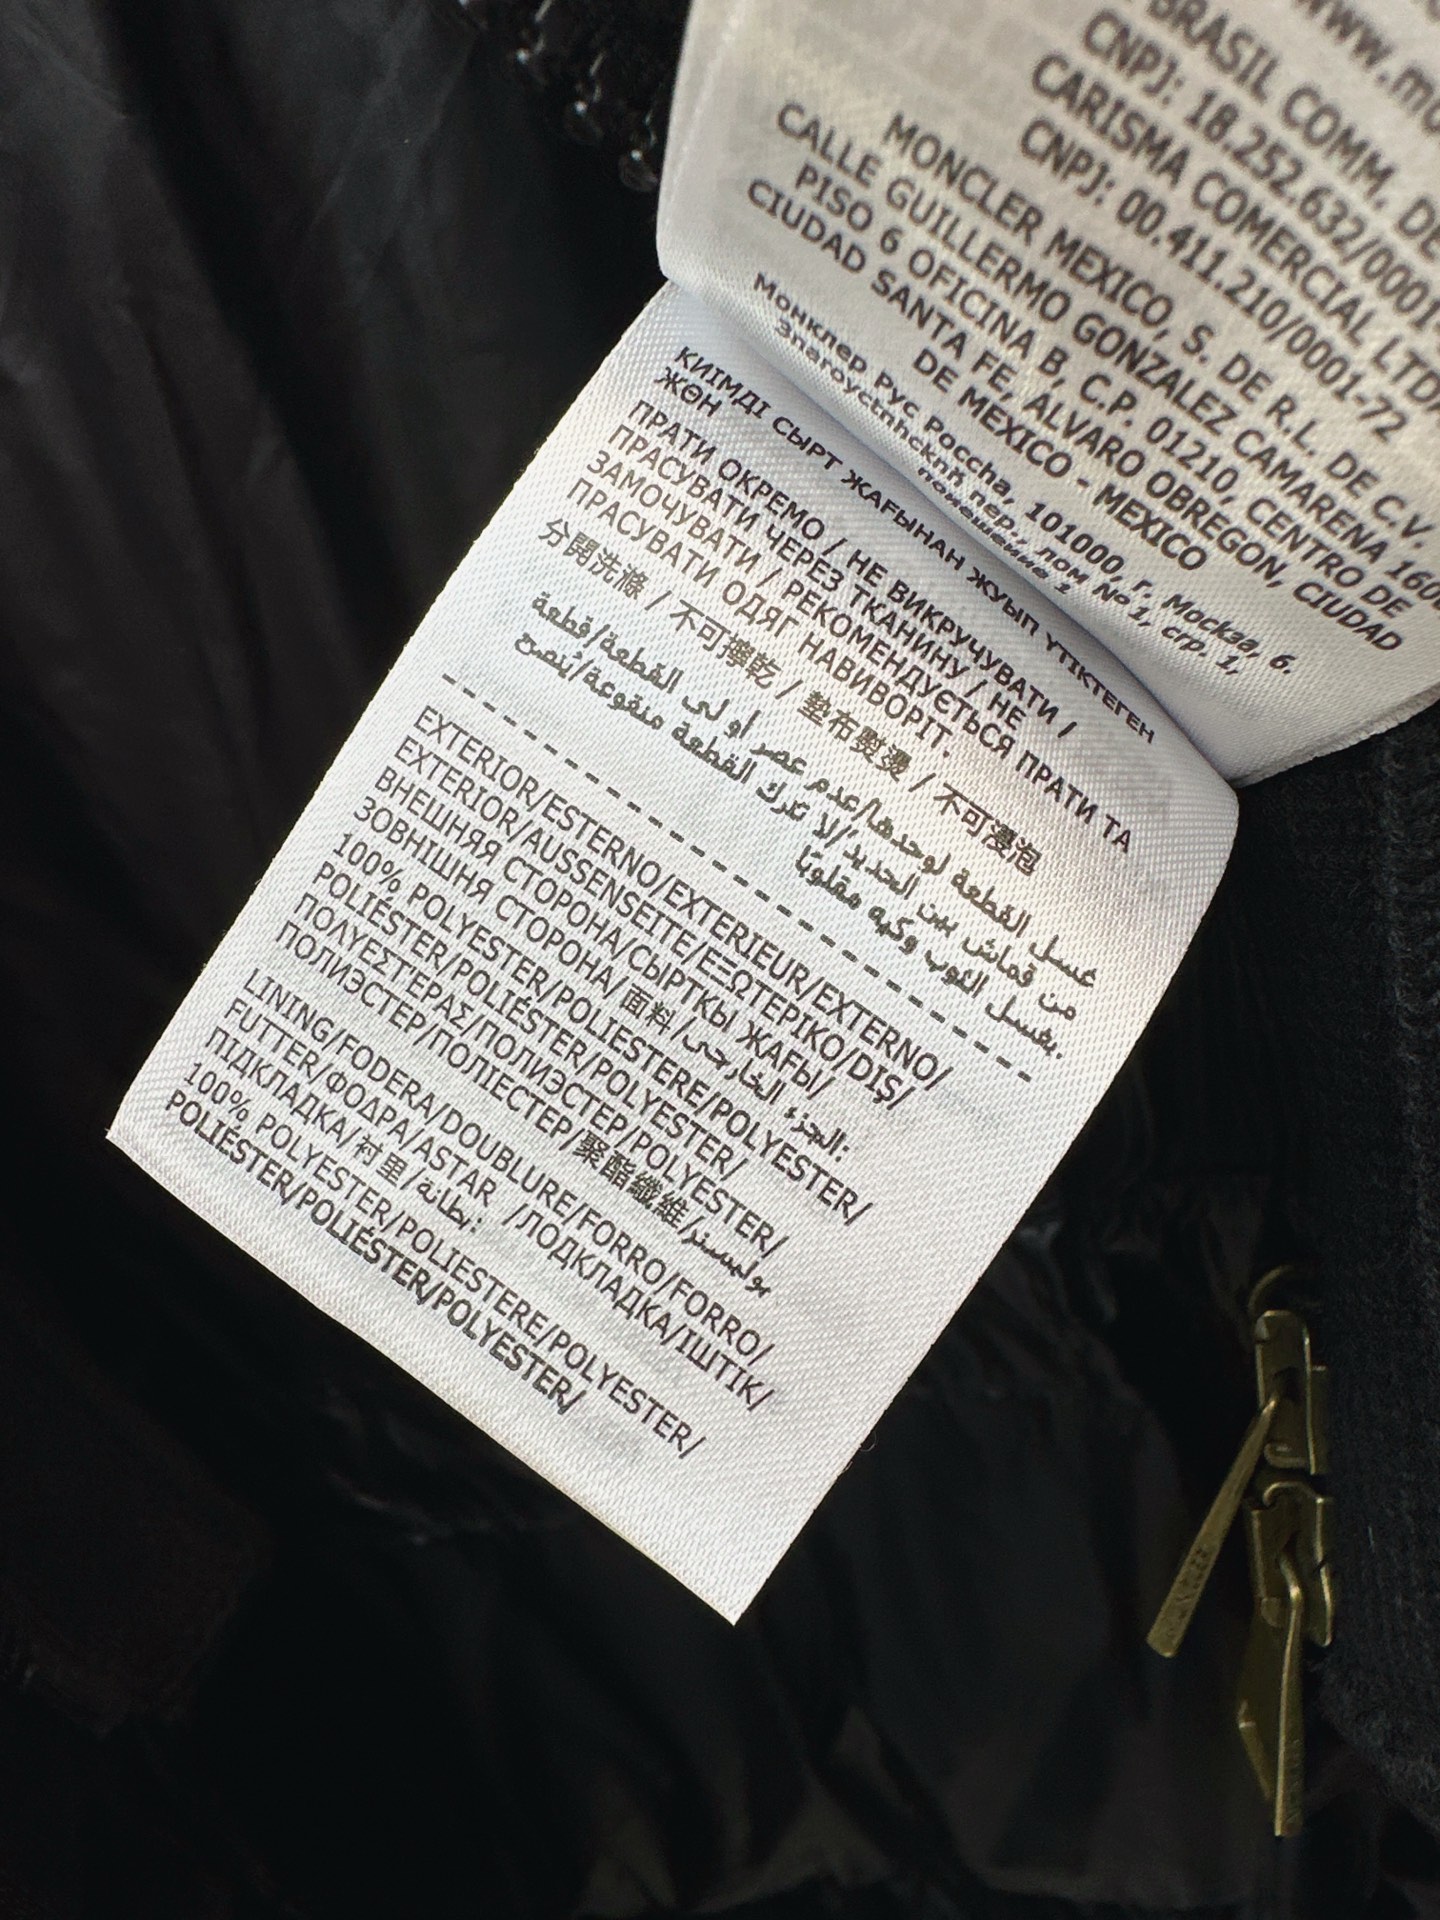 www.mo
BRASIL COMM. DE
CNPJ: 18.252.632/0001-
CARISMA COMERCIAL LTDA
CNPJ: 00.411.210/0001-72
MONCLER MEXICO, S. DE R.L. DE C.V.
CALLE GUILLERMO GONZALEZ CAMARENA 1600
PISO 6 OFICINA B, C.P. 01210, CENTRO DE
CIUDAD SANTA FE, ALVARO OBREGON, CIUDAD
DE MEXICO - MEXICO
Монклер Рус Россha, 101000, г. Москва, б.
Златоустпhскпй пер., лом №1, стр. 1,
помещение 1
КИІМДІ СЫРТ ЖАҒЫНАН ЖУЫП ҮТІКТЕГЕН
ЖӨН
ПРАТИ ОКРЕМО / НЕ ВИКРУЧУВАТИ /
ПРАСУВАТИ ЧЕРЕЗ ТКАНИНУ / НЕ
ЗАМОЧУВАТИ / РЕКОМЕНДУЄТЬСЯ ПРАТИ ТА
ПРАСУВАТИ ОДЯГ НАВИВОРІТ.
分開洗滌 / 不可擰乾 / 墊布熨燙 / 不可浸泡
غسل القطعة لوحدها/عدم عصر أو لى القطعة/قطعة
من قماش بين الحديد/لا تترك القطعة منقوعة/يُنصح
بغسل الثوب وكيه مقلوبًا.
EXTERIOR/ESTERNO/EXTERIEUR/EXTERNO/
EXTERIOR/AUSSENSEITE/ΕΞΩΤΕΡΙΚΟ/DIŞ/
ВНЕШНЯЯ СТОРОНА/СЫРТКЫ ЖАҒЫ/
ЗОВНІШНЯ СТОРОНА/面料/الجزء الخارجى:
100% POLYESTER/POLIESTERE/POLYESTER/
POLIÉSTER/POLIÉSTER/POLYESTER/
ΠΟΛΥΕΣΤΈΡΑΣ/ПОЛИЭСТЕР/POLYESTER/
ПОЛИЭСТЕР/ПОЛІЕСТЕР/聚酯纖維/بوليستر
LINING/FODERA/DOUBLURE/FORRO/FORRO/
FUTTER/ΦΟΔΡΑ/ASTAR /ПОДКЛАДКА/ІШТІК/
ПІДКЛАДКА/衬里/بطانة:
100% POLYESTER/POLIESTERE/POLYESTER/
POLIÉSTER/POLIÉSTER/POLYESTER/